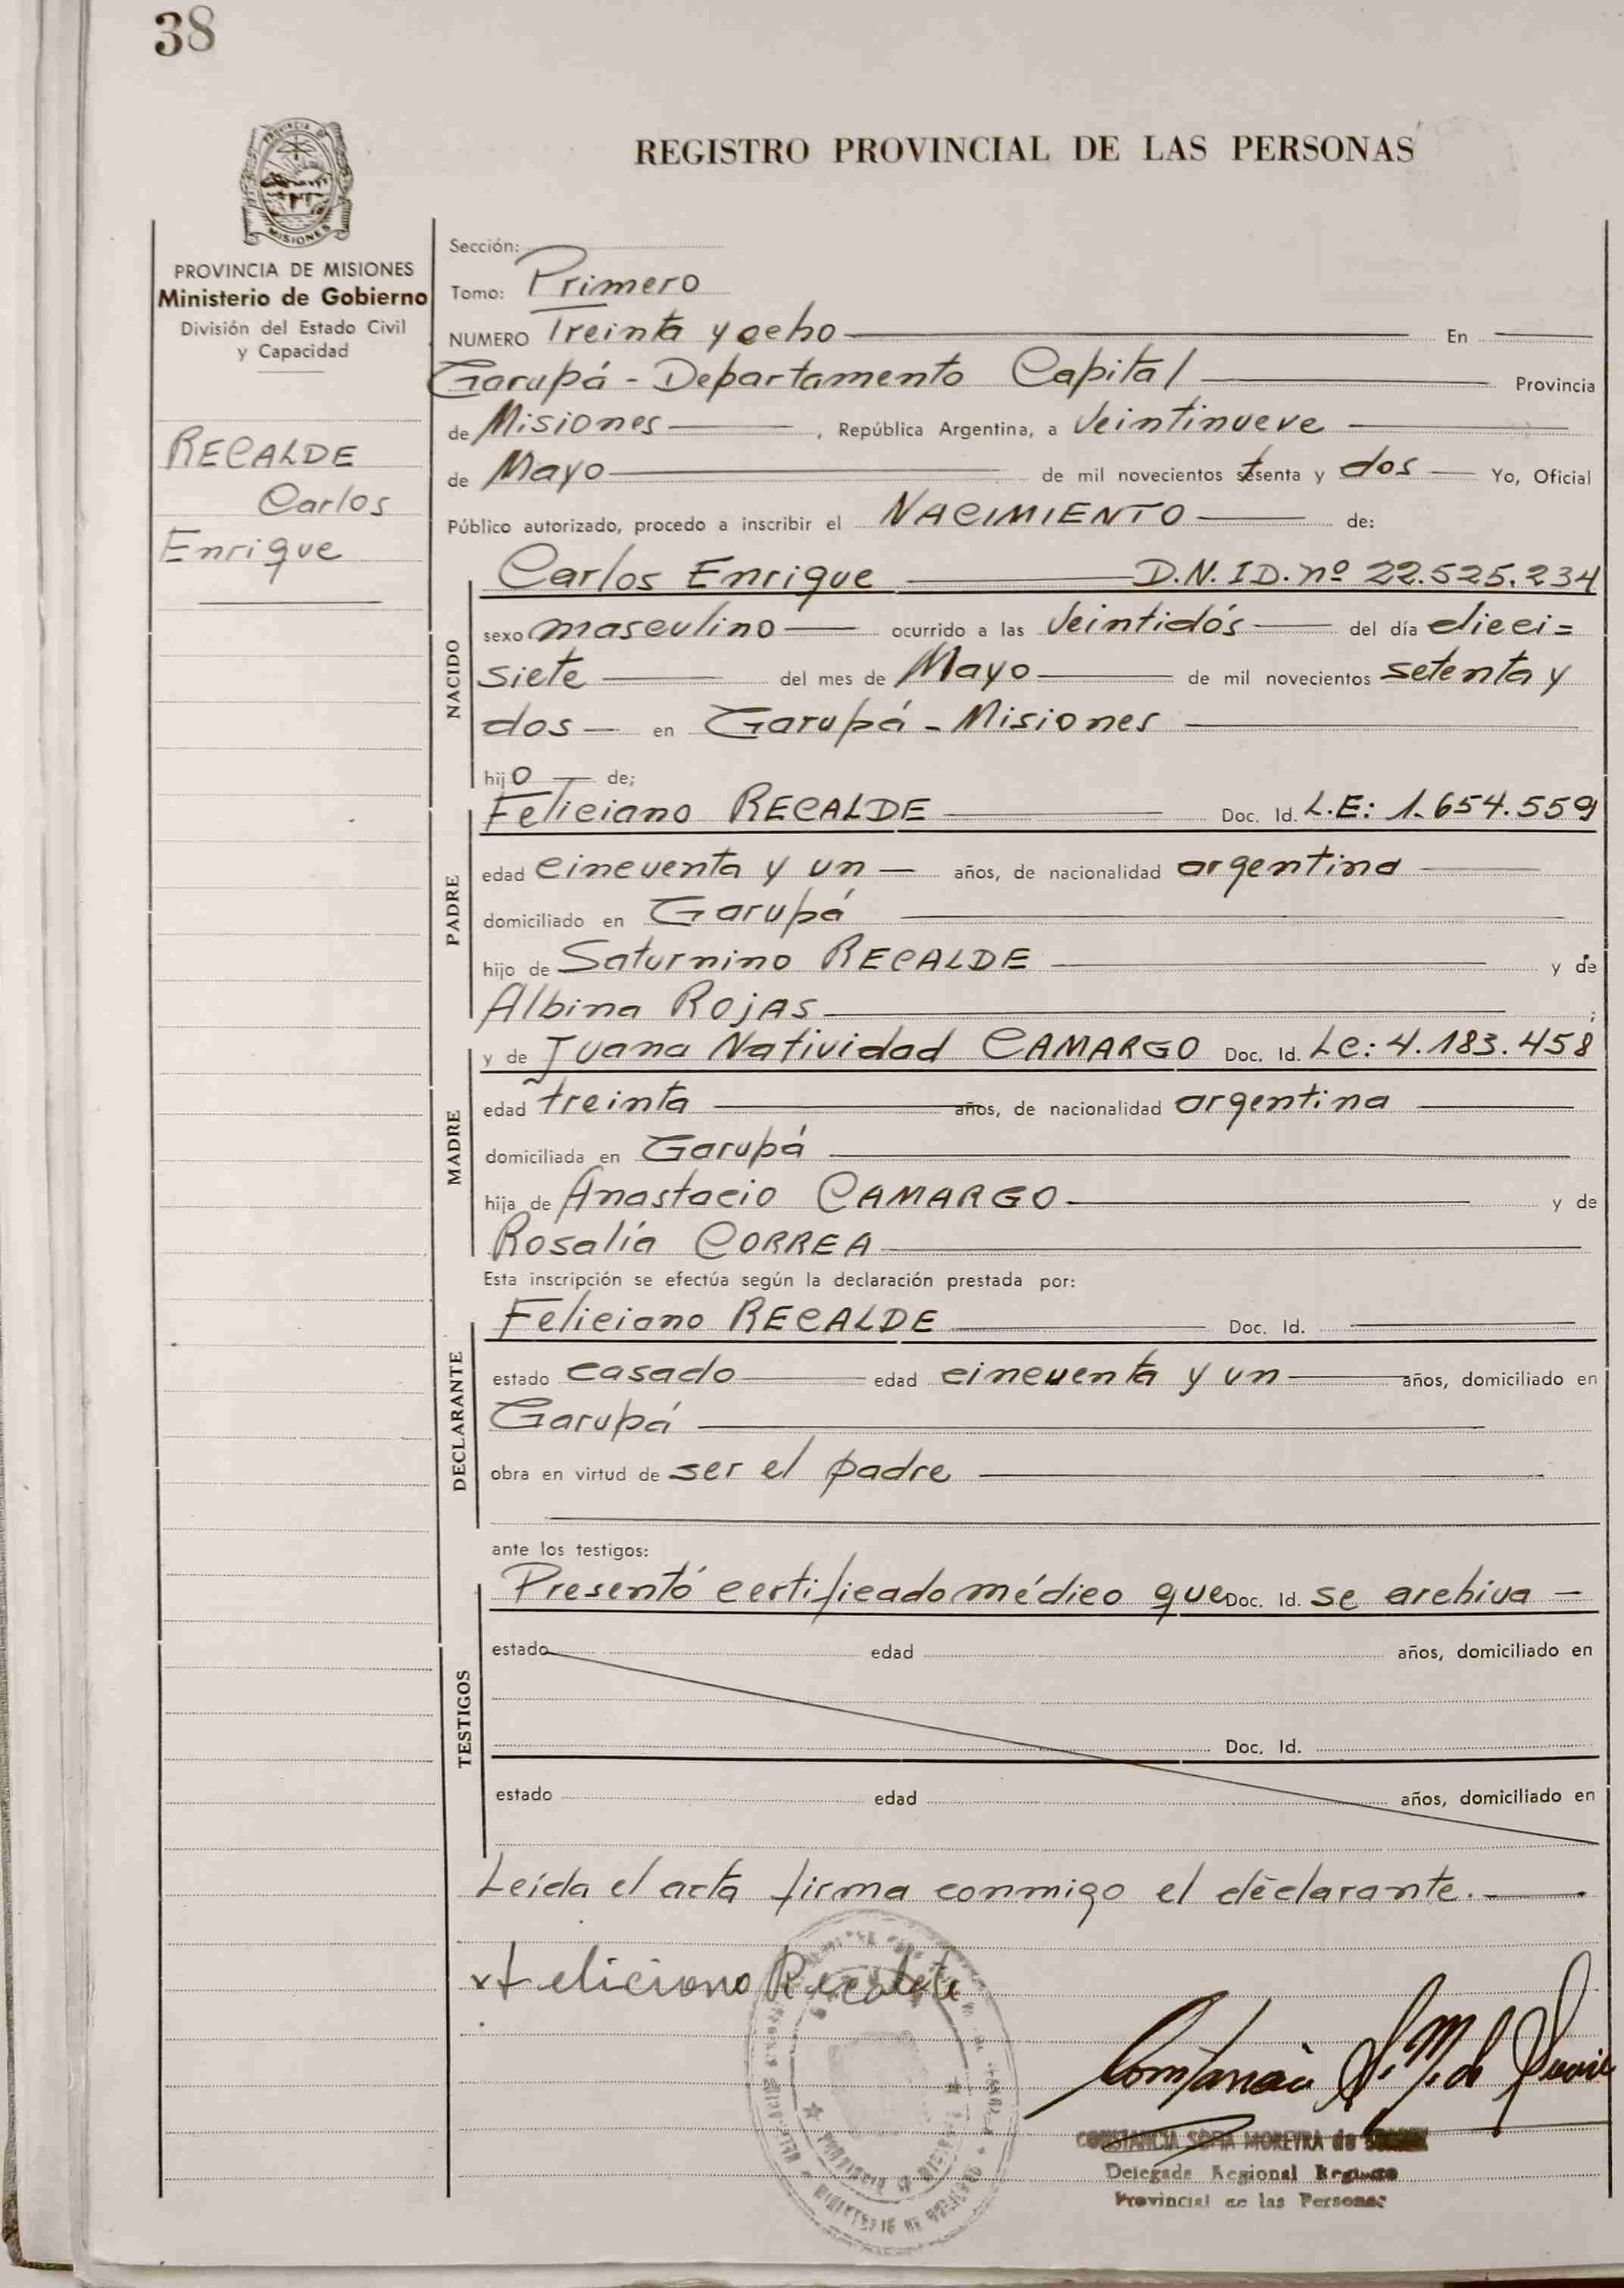 38
PROVINCIA DE
MISIONES
REGISTRO PROVINCIAL DE LAS PERSONAS
PROVINCIA DE MISIONES
Ministerio de Gobierno
División del Estado Civil
y Capacidad
RECALDE
Carlos
Enrique
Sección:
Tomo: Primero
NUMERO Treinta y ocho En
Garupá - Departamento Capital Provincia
de Misiones , República Argentina, a Veintinueve
de Mayo de mil novecientos setenta y dos Yo, Oficial
Público autorizado, procedo a inscribir el NACIMIENTO de:
Carlos Enrique D.N.ID. nº 22.525.234
NACIDO
sexo masculino ocurrido a las Veintidós del día dieci=
siete del mes de Mayo de mil novecientos setenta y
dos en Garupá - Misiones
hijo de;
PADRE
Feliciano RECALDE Doc. Id. L.E: 1.654.559
edad cincuenta y un años, de nacionalidad argentina
domiciliado en Garupá
hijo de Saturnino RECALDE y de
Albina ROJAS ;
MADRE
y de Juana Natividad CAMARGO Doc. Id. LC: 4.183.458
edad treinta años, de nacionalidad argentina
domiciliada en Garupá
hija de Anastacio CAMARGO y de
Rosalía CORREA
Esta inscripción se efectúa según la declaración prestada por:
DECLARANTE
Feliciano RECALDE Doc. Id.
estado casado edad cincuenta y un años, domiciliado en
Garupá
obra en virtud de ser el padre
ante los testigos:
TESTIGOS
Presentó certificado médico que Doc. Id. se archiva
estado edad años, domiciliado en
Doc. Id.
estado edad años, domiciliado en
Leída el acta firma conmigo el declarante.
x Feliciano Recalde
CONSTANCIA SOFIA MOREYRA de
Delegada Regional Registro
Provincial de las Personas